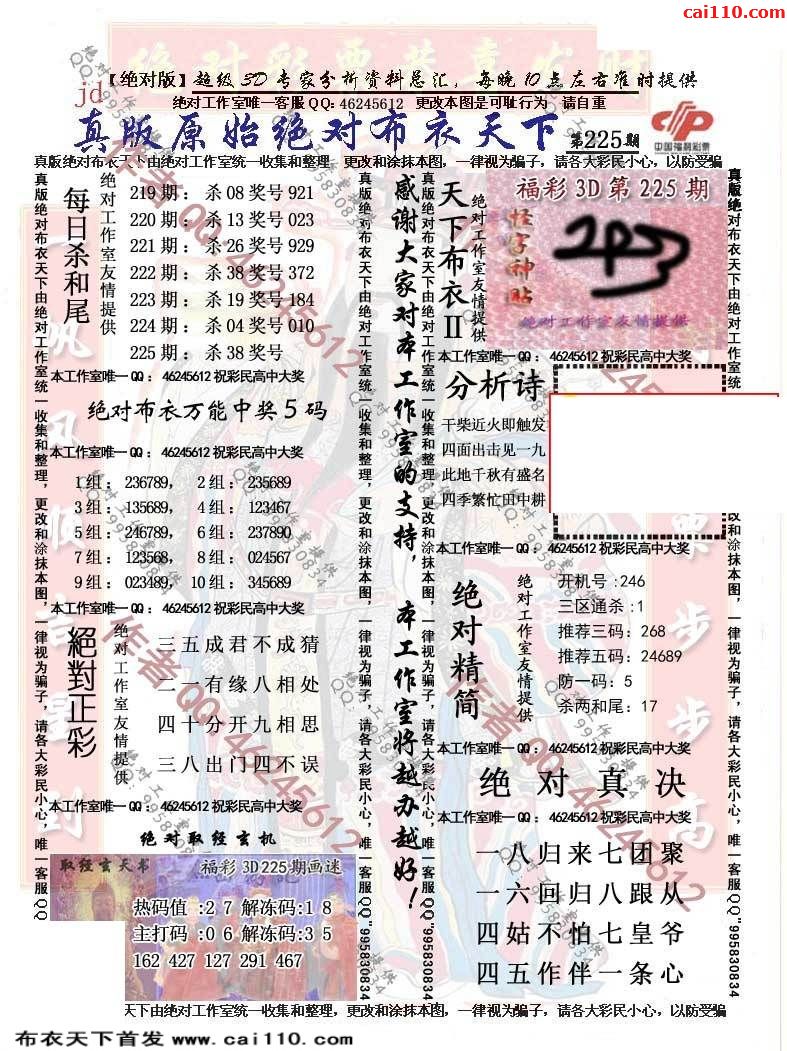 cai110.com
绝对彩票共享发财
【绝对版】超级3D专家分析资料总汇，每晚10点左右准时提供
jd
绝对工作室唯一客服QQ: 46245612 更改本图是可耻行为 请自重
真版原始绝对布衣天下
第225期
中国福利彩票
真版绝对布衣天下由绝对工作室统一收集和整理，更改和涂抹本图，一律视为骗子，请各大彩民小心，以防受骗
每日杀和尾
绝对工作室友情提供
219期：杀08奖号921
220期：杀13奖号023
221期：杀26奖号929
222期：杀38奖号372
223期：杀19奖号184
224期：杀04奖号010
225期：杀38奖号
本工作室唯一QQ：46245612祝彩民高中大奖
绝对布衣万能中奖5码
本工作室唯一QQ：46245612祝彩民高中大奖
1组：236789， 2组：235689
3组：135689， 4组：123467
5组：246789， 6组：237890
7组：123568， 8组：024567
9组：023489， 10组：345689
本工作室唯一QQ：46245612祝彩民高中大奖
絕對正彩
绝对工作室友情提供
三五成君不成猜
二一有缘八相处
四十分开九相思
三八出门四不误
本工作室唯一QQ：46245612祝彩民高中大奖
绝对取经玄机
取经玄天书
福彩3D225期画迷
热码值:27解冻码:18
主打码:06解冻码:35
162 427 127 291 467
感谢大家对本工作室的支持，本工作室将越办越好！
天下布衣II
绝对工作室友情提供
福彩3D第225期
怪字神贴
绝对工作室友情提供
本工作室唯一QQ：46245612祝彩民高中大奖
分析诗
干柴近火即触发
四面出击见一九
此地千秋有盛名
四季繁忙田中耕
本工作室唯一QQ：46245612祝彩民高中大奖
绝对精简
绝对工作室友情提供
开机号:246
三区通杀:1
推荐三码:268
推荐五码:24689
防一码:5
杀两和尾:17
本工作室唯一QQ：46245612祝彩民高中大奖
绝对真决
本工作室唯一QQ：46245612祝彩民高中大奖
一八归来七团聚
一六回归八跟从
四姑不怕七皇爷
四五作伴一条心
真版绝对布衣天下由绝对工作室统一收集和整理，更改和涂抹本图，一律视为骗子，请各大彩民小心，唯一客服QQ"995830834
天下由绝对工作室统一收集和整理，更改和涂抹本图，一律视为骗子，请各大彩民小心，以防受骗
布衣天下首发 www.cai110.com